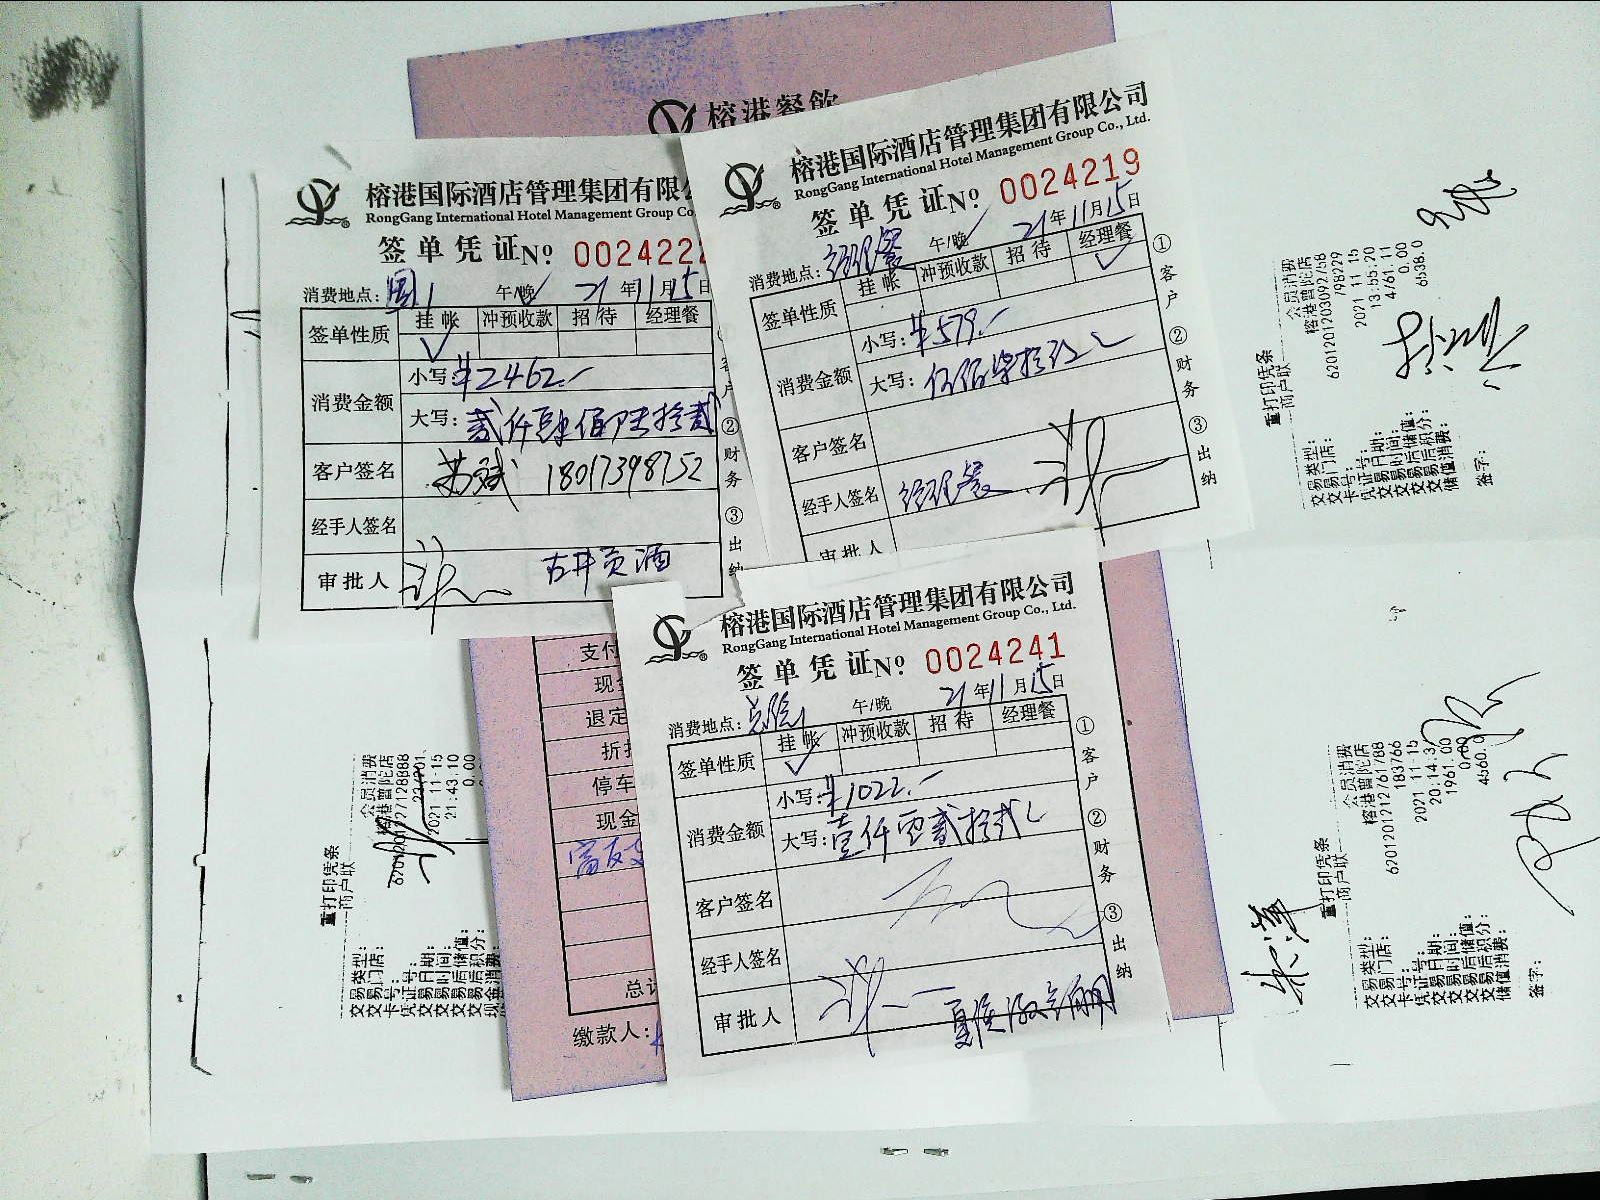 榕港餐飲
榕港国际酒店管理集团有限
RongGang International Hotel Management Group Co
签单凭证 No 002422
消费地点: 午/晚 21年11月15日
签单性质 挂帐 冲预收款 招待 经理餐
消费金额 小写: ¥2462.-
大写: 贰仟肆佰陆拾贰
客户签名 苏斌 18017398752
经手人签名
审批人 古井贡酒
② 财务
③ 出纳
榕港国际酒店管理集团有限公司
RongGang International Hotel Management Group Co., Ltd.
签单凭证 No 0024219
消费地点: 经理餐 午/晚 21年11月15日
签单性质 挂帐 冲预收款 招待 经理餐
消费金额 小写: ¥579.-
大写: 伍佰柒拾玖
客户签名
经手人签名 经理餐
审批人
① 客户
② 财务
③ 出纳
榕港国际酒店管理集团有限公司
RongGang International Hotel Management Group Co., Ltd.
签单凭证 No 0024241
消费地点: 午/晚 21年11月15日
签单性质 挂帐 冲预收款 招待 经理餐
消费金额 小写: ¥1022.-
大写: 壹仟零贰拾贰
客户签名
经手人签名
审批人
① 客户
② 财务
③ 出纳
支付
现金
退定
折扣
停车
现金
总计
缴款人:
重打印凭条
商户联
交易类型: 会员消费
交易门店: 榕港普陀店
卡号:
凭证号:
交易日期: 2021-11-15
交易时间: 21:43.10
交易后储值: 0.00
交易后积分:
现金消费:
重打印凭条
商户联
交易类型: 会员消费
交易门店: 榕港普陀店
卡号: 6201201203092758
凭证号: 798229
交易日期: 2021 11 15
交易时间: 13:55.20
交易后储值: 4761.11
交易后积分: 0.00
储值消费: 6538.0
签字:
重打印凭条
商户联
交易类型: 会员消费
交易门店: 榕港普陀店
卡号: 6201201212761788
凭证号: 183766
交易日期: 2021 11-15
交易时间: 20.14.3
交易后储值: 1961.00
交易后积分: 0.00
储值消费: 4560.0
签字: